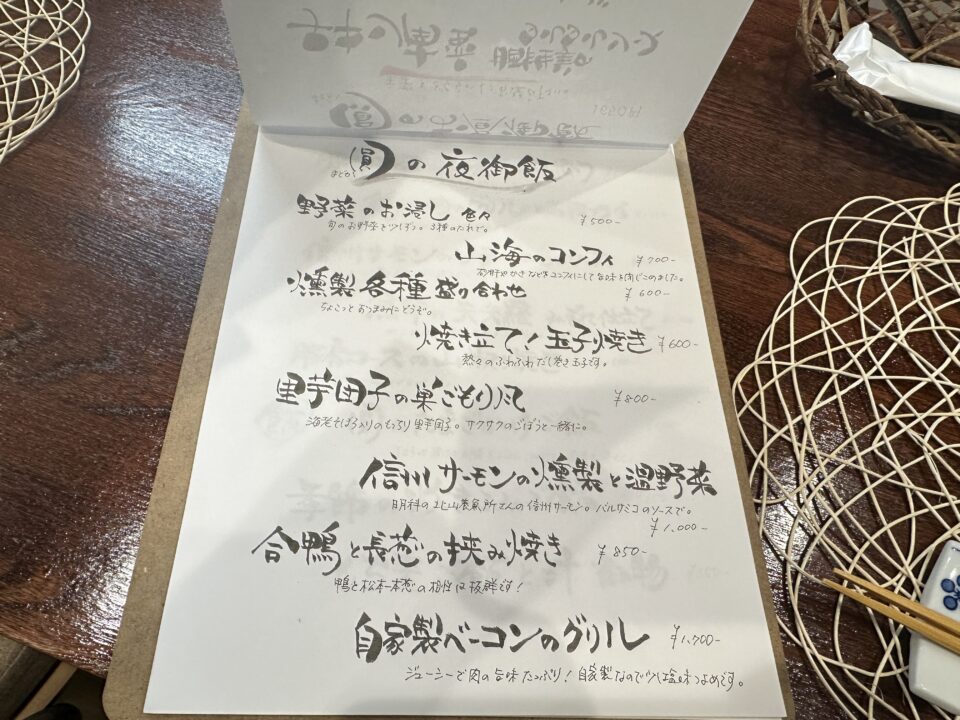 圓の夜御飯
まどか
野菜のお浸し 色々
¥500-
旬のお野菜を少しずつ。3種のたれで。
山海のコンフィ
¥700-
砂肝やかきなどをコンフィにして旨味を閉じこめました。
燻製各種盛り合わせ
¥600-
ちょこっとおつまみにどうぞ。
焼き立て!玉子焼き
¥600-
熱々のふわふわだし巻き玉子です。
里芋団子の巣ごもり風
¥800-
海老そぼろ入りのもっちり里芋団子。サクサクのごぼうと一緒に。
信州サーモンの燻製と温野菜
明科の北山養魚所さんの信州サーモン。バルサミコのソースで。
¥1,000-
合鴨と長葱の挟み焼き
¥850-
鴨と松本一本葱の相性は抜群です!
自家製ベーコンのグリル
¥1,700-
ジューシーで肉の旨味たっぷり!自家製なので少し塩味つよめです。